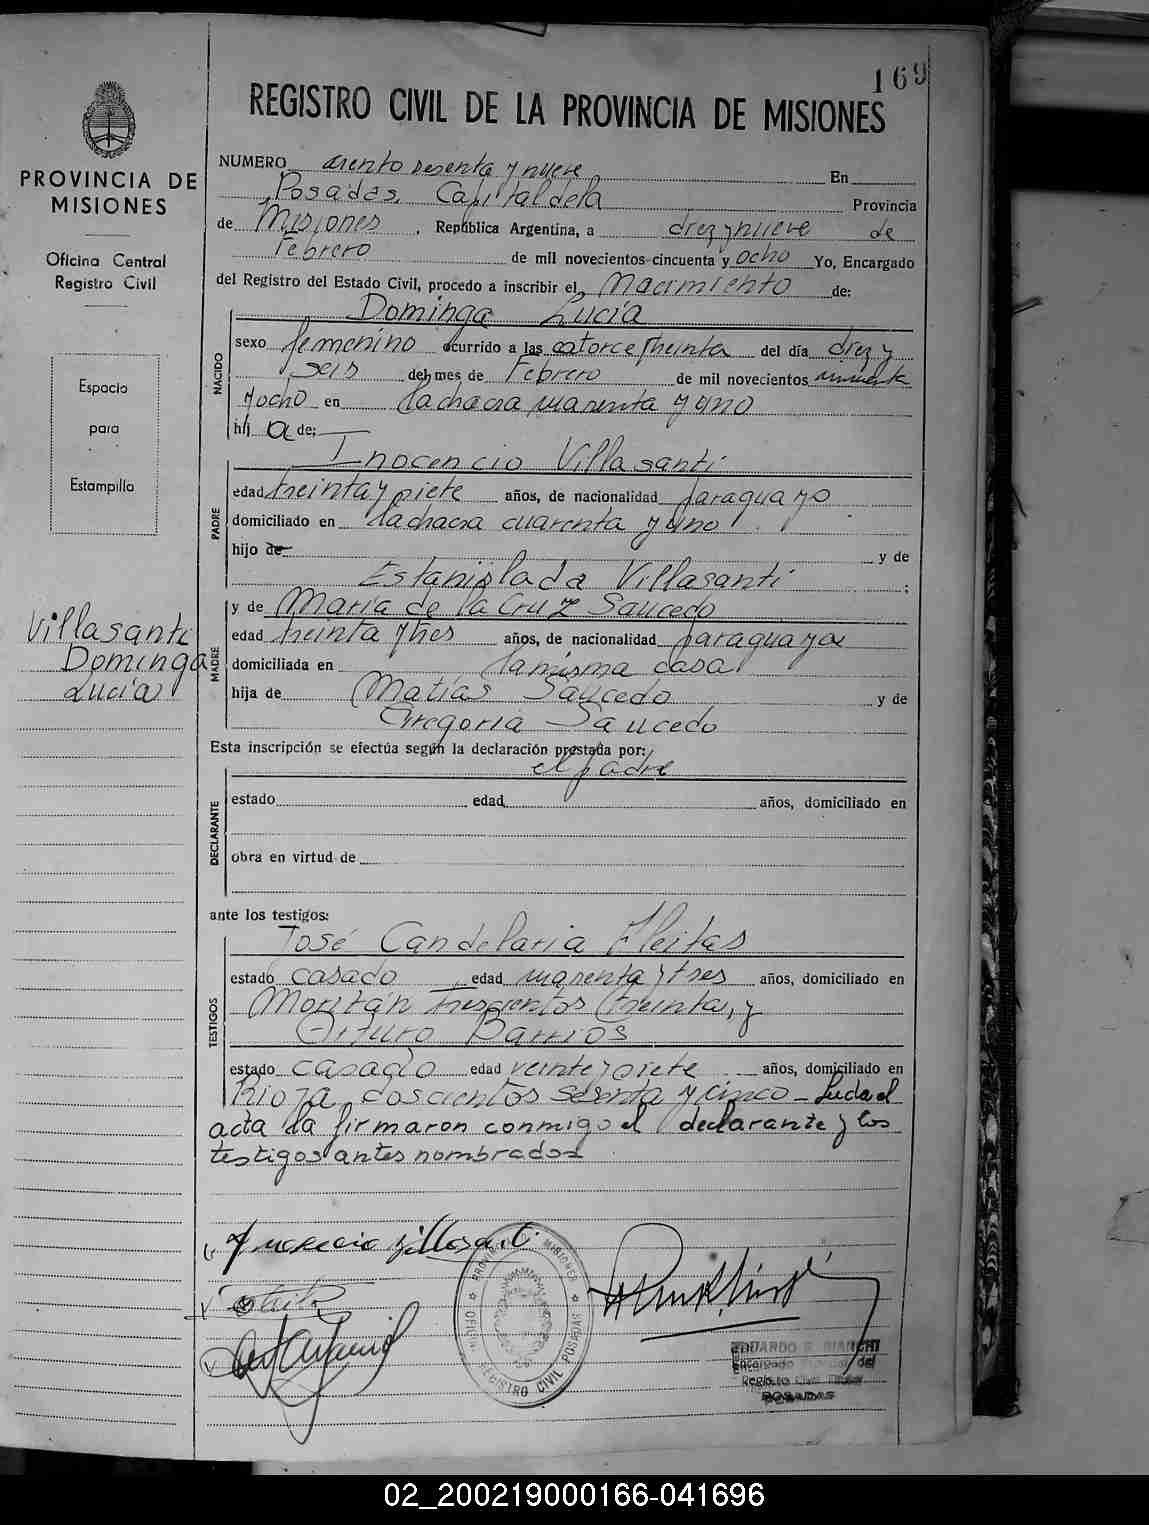 169
REGISTRO CIVIL DE LA PROVINCIA DE MISIONES
PROVINCIA DE
MISIONES
Oficina Central
Registro Civil
Espacio
para
Estampilla
Villasanti
Dominga
Lucia
NUMERO ciento sesenta y nueve En
Posadas, Capital de la Provincia
de Misiones, República Argentina, a diez y nueve de
Febrero de mil novecientos cincuenta y ocho Yo, Encargado
del Registro del Estado Civil, procedo a inscribir el Nacimiento de:
Dominga Lucía
NACIDO
sexo femenino ocurrido a las catorce treinta del día diez y
seis del mes de Febrero de mil novecientos cincuenta
y ocho en la chacra cuarenta y uno
hij a de:
Inocencio Villasanti
PADRE
edad treinta y siete años, de nacionalidad paraguayo
domiciliado en la chacra cuarenta y uno
hijo de y de
Estanislada Villasanti ;
y de María de la Cruz Saucedo
MADRE
edad treinta y tres años, de nacionalidad paraguaya
domiciliada en la misma casa
hija de Matías Saucedo y de
Gregoria Saucedo
Esta inscripción se efectúa según la declaración prestada por:
el padre
DECLARANTE
estado edad años, domiciliado en
obra en virtud de
ante los testigos:
José Candelaria Fleitas
TESTIGOS
estado casado edad cuarenta y tres años, domiciliado en
Moritán trescientos treinta, y
Arturo Barrios
estado casado edad veinte y siete años, domiciliado en
Rioja doscientos sesenta y cinco - Leida el
acta la firmaron conmigo el declarante y los
testigos antes nombrados
Inocencio Villasanti
PROVINCIA MISIONES
OFICINA REGISTRO CIVIL POSADAS
EDUARDO BIANCHI
Encargado del
Registro Civil
POSADAS
02_200219000166-041696